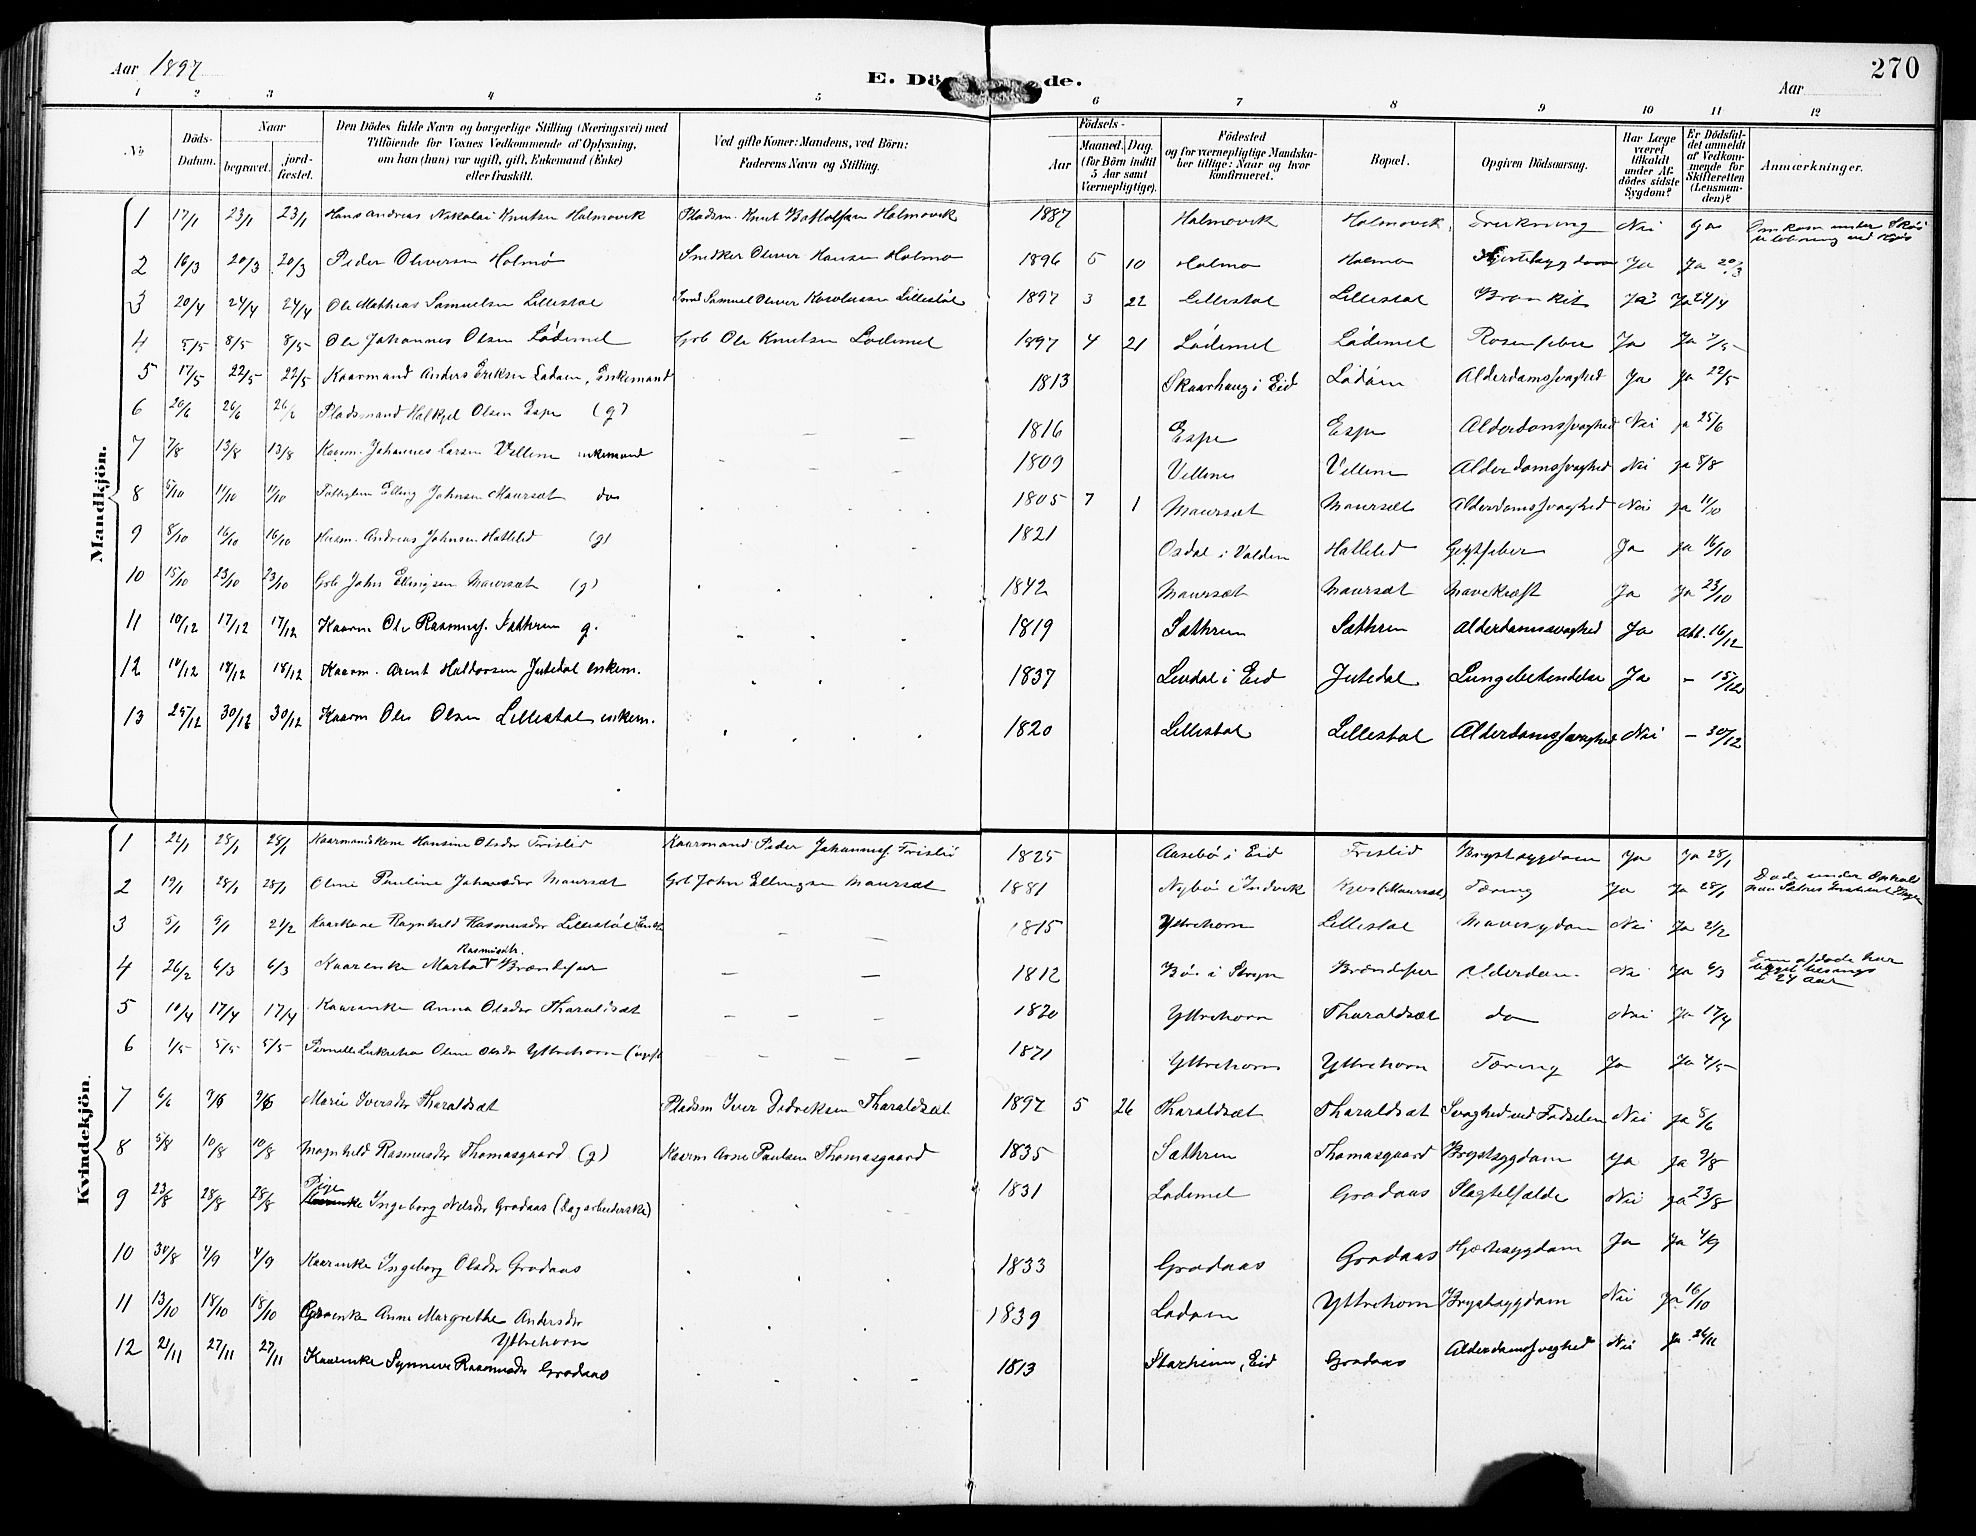 Aar 1897
E. Dö de.
Aar
270
1 2 3 4 5 6 7 8 9 10 11 12
No
Döds-Datum.
Naar
begravet.
jord-fæstet.
Den Dödes fulde Navn og borgerlige Stilling (Næringsvei) med
Tilföiende for Voxnes Vedkommende af Oplysning,
om han (hun) var ugift, gift, Enkemand (Enke)
eller fraskilt.
Ved gifte Koner: Mandens, ved Börn:
Faderens Navn og Stilling.
Födsels-
Aar
Maaned. Dag.
(for Börn indtil
5 Aar samt
Værnepligtige).
Födested
og for værnepligtige Mandska-
ber tillige: Naar og hvor
konfirmeret.
Bopæl.
Opgiven Dödsaarsag.
Har Læge
været
tilkaldt
under Af-
dödes sidste
Sygdom?
Er Dödsfal-
det anmeldt
af Vedkom-
mende for
Skifteretten
(Lensman-
den)?
Anmærkninger.
Mandkjön.
1 17/1 23/1 23/1 Hans Andreas Nikolai Knutsen Holmovik Pladsm. Knut Holmovik 1887 Holmovik Holmovik Drukning Nei Ja Omkom under
2 16/3 20/3 20/3 Peder Oliversen Holmø Snedker Oliver Hansen Holmø 1896 5 10 Holmø Holmø Hjertesygdom Ja Ja 20/3
3 20/4 24/4 24/4 Ole Mathias Samuelsen Lillestøl Samuel Oliver Lillestøl 1897 3 22 Lillestøl Lillestøl Bronkit Ja Ja 24/4
4 5/5 8/5 8/5 Ole Johannes Olsen Lødemel Gbr Ole Knutsen Lødemel 1897 4 21 Lødemel Lødemel Rosenfeber Ja Ja 7/5
5 17/5 22/5 22/5 Kaarmand Anders Eriksen Ladøm, Enkemand 1813 Skaarhaug i Eid Ladøm Alderdomssvaghed Ja Ja 22/5
6 20/6 26/6 26/6 Pladsmand Olsen Espe (g) 1816 Espe Espe Alderdomssvaghed Nei ja 25/6
7 7/8 13/8 13/8 Kaarm. Johannes Larsen Vellene enkemand 1809 Vellene Vellene Alderdomssvaghed Nei ja 8/8
8 5/10 11/10 11/10 Elling Johnsen Maursæt do 1805 7 1 Maursæt Maursæt Alderdomssvaghed Nei ja 11/10
9 8/10 16/10 16/10 Husm. Andreas Johnsen Hallelid (g) 1821 Osdal i Valdøm Hallelid Gigtfeber Ja ja 16/10
10 15/10 23/10 23/10 Gbr John Ellingsen Maursæt (g) 1842 Maursæt Maursæt Mavekræft Ja Ja 23/10
11 10/12 17/12 17/12 Kaarm Ole Rasmuss. Sæthren g. 1819 Sæthren Sæthren Alderdomssvaghed Ja att. 16/12
12 10/12 18/12 18/12 Kaarm. Arent Haldorsen Jutedal enkem. 1837 Leivdal i Eid Jutedal Lungebetendelse Ja – 15/12
13 25/12 30/12 30/12 Kaarm Ole Olsen Lillestøl enkem. 1820 Lillestøl Lillestøl Alderdomssvaghed Nei – 30/12
Kvindekjön.
1 22/1 28/1 28/1 Kaarmandskone Hansine Olsdr Fristid Kaarmand Peder Johanness. Fristid 1825 Aasebø i Eid Fristid Brystsygdom Ja Ja 28/1
2 19/1 28/1 28/1 Oline Pauline Johnsdr Maursæt Gbr John Ellingsen Maursæt 1881 Nybø i Indvik (Maursæt) Tæring Ja Ja 28/1 Døde under Ophold
3 5/1 9/1 21/2 Kaarkone Ragnhild Rasmusdr Lillestøl 1815 Yttrehorn Lillestøl Mavesygdom Nei Ja 2/2
4 26/2 6/3 6/3 Kaarenke Marta Rasmusdtr. Brændefur – – 1812 Bø i Stryn Brændefur Alderdom Nei Ja 6/3 i 24 Aar
5 10/4 17/4 17/4 Kaarenke Anna Olsdr Tharaldsæt – – – 1820 Yttrehorn Tharaldsæt do Nei Ja 17/4
6 1/5 5/5 5/5 Pernille Lukretia Oline Olsdr Yttrehorn (ugift) – – – 1871 Yttrehorn Yttrehorn Tæring Ja Ja 4/5
7 6/6 9/6 9/6 Marie Iversdr Tharaldsæt Pladsm Iver Didriksen Tharaldsæt 1897 5 26 Tharaldsæt Tharaldsæt Svaghed ved Fødselen Nei ja 8/6
8 5/8 10/8 10/8 Magnhild Rasmusdr Thomasgaard (g) Kaarm Arne Paulsen Thomasgaard 1835 Sæthren Thomasgaard Brystsygdom Ja ja 9/8
9 23/8 28/8 28/8 Pige Ingeborg Nilsdr Grodaas (Dagarbeiderske) 1831 Lødemel Grodaas Slagtilfælde Nei ja 23/8
10 30/8 4/9 4/9 Kaarenke Ingeborg Olsdr Grodaas 1833 Grodaas Grodaas Hjertesygdom Ja Ja 4/9
11 13/10 18/10 18/10 Anne Margrethe Andersdr Yttrehorn 1839 Ladøm Yttrehorn Brystsygdom Nei Ja 16/10
12 21/11 27/11 27/11 Kaarenke Synneve Rasmusdr Grodaas 1813 Starheim, Eid Grodaas Alderdomssvaghed Nei Ja 26/11